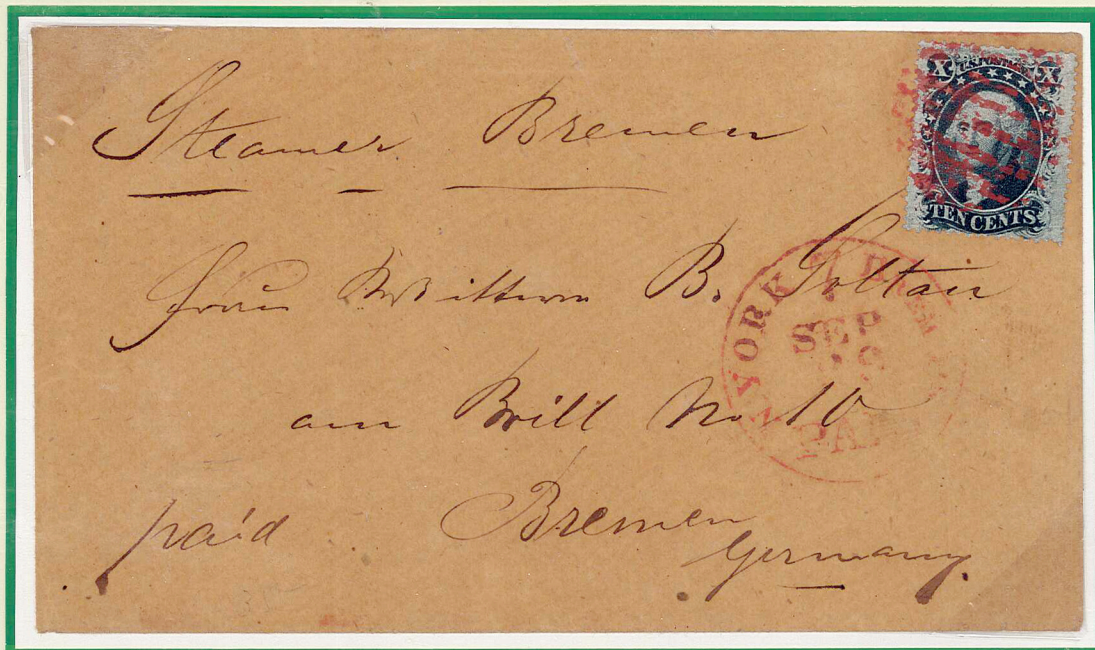 Steamer Bremen
X U.S. POSTAGE X
TEN CENTS
Frau Wittwe B. Soltau
N. YORK Brem
SEP
PAID
am Brill No 10
paid Bremen
Germany.